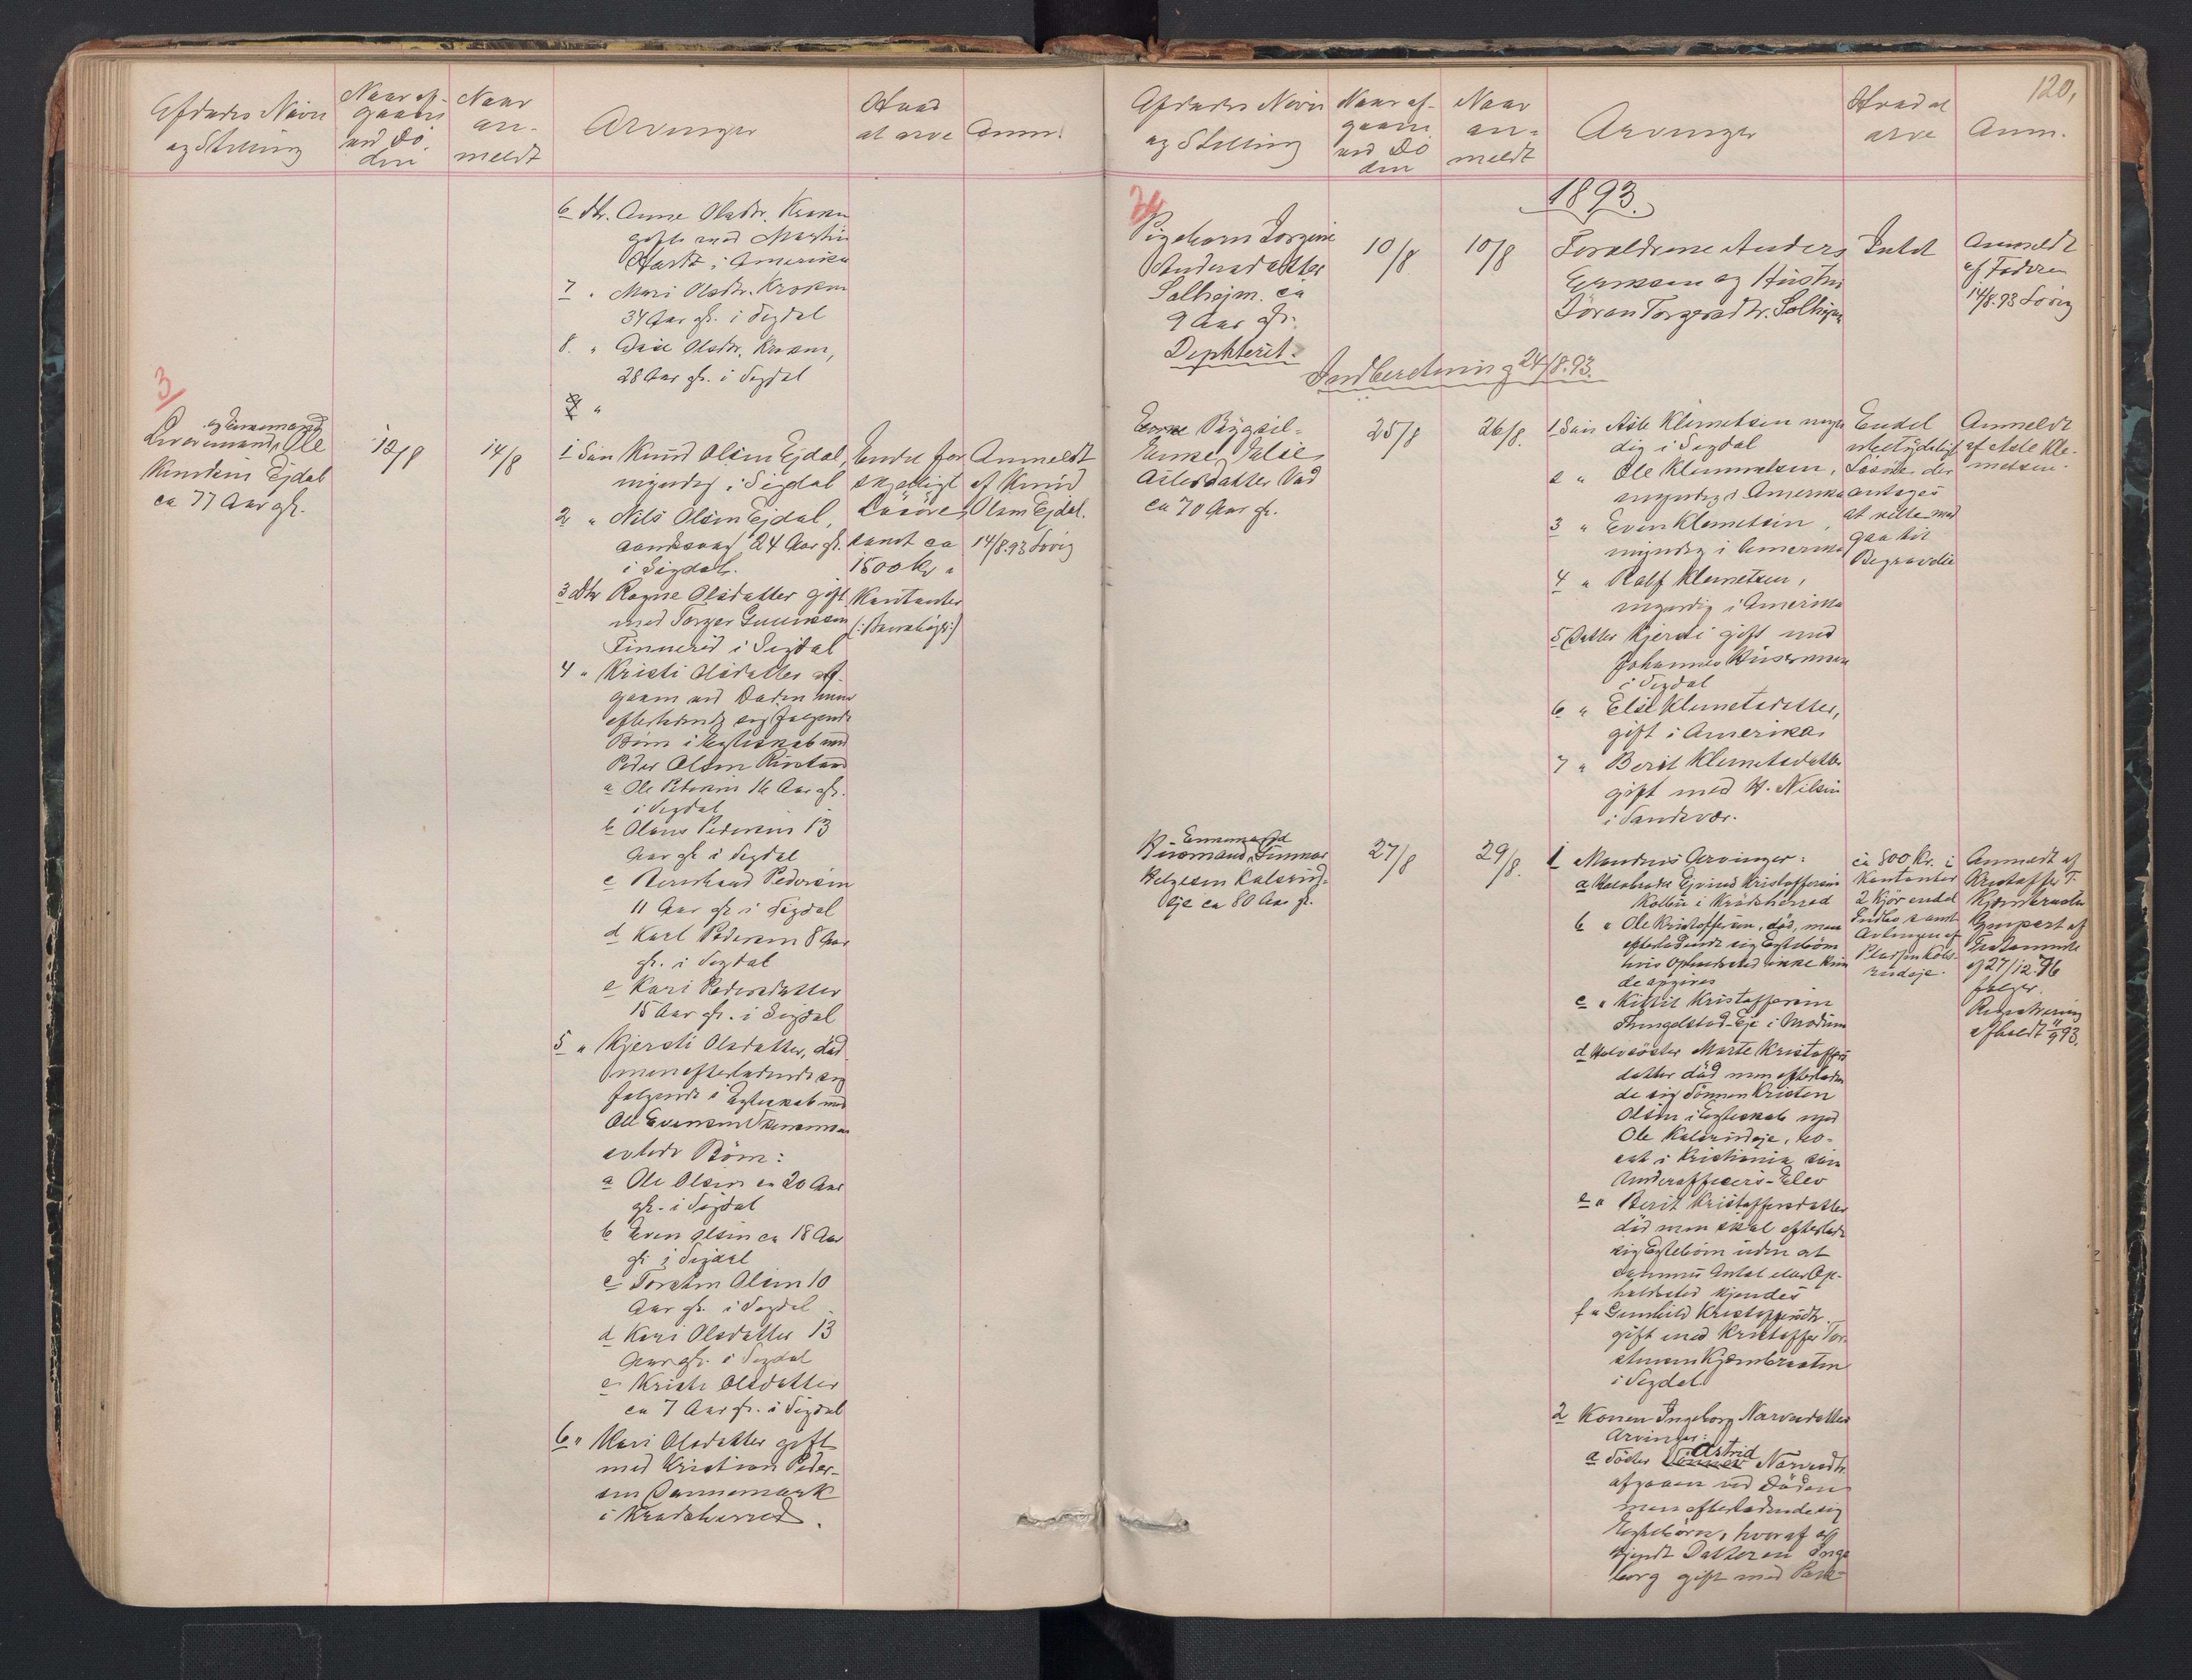 Afdødes Navn
og Stilling
Naar af-
gaaen
ved Dø-
den
Naar
an-
meldt
Arvinger
Hvad
at arve
Anm.
6 Dtr. Anne Olsdtr. Kroken
gift med Martin
i Amerika
7 " Mari Olsdtr. Kroken
34 Aar gl. i Sigdal
8. " Olsdtr. Kroken,
28 Aar gl. i Sigdal
9 "
3
og Enkemand
Livøremand, Ole
Knudsen Ejdal
ca 77 Aar gl.
12/8
14/8
1 Søn Knud Olsen Ejdal,
myndig, i Sigdal
2 " Nils Olsen Ejdal,
aandssvag 24 Aar gl.
i Sigdal.
3 Dtr Ragne Olsdatter gift
med Torger Gunniksen
Finnerud i Sigdal
4 " Kristi Olsdatter af-
gaaen ved Døden men
efterladende sig følgende
Børn i Egteskab med
Peder Olsen Rustand
a Ole Pedersen 16 Aar gl.
i Sigdal
b Olaus Pedersen 13
Aar gl. i Sigdal
c Bernhard Pedersen
11 Aar gl. i Sigdal
d Karl Pedersen 8 Aar
gl. i Sigdal
e Kari Pedersdatter
15 Aar gl. i Sigdal
5 " Kjersti Olsdatter, død
men efterladende sig
følgende i Egteskab med
Ole Evensen
avlede Børn:
a Ole Olsen ca 20 Aar
gl. i Sigdal
b Even Olsen ca 18 Aar
gl. i Sigdal
c Torsten Olsen 10
Aar gl. i Sigdal
d Kari Olsdatter 13
Aar gl. i Sigdal
e Kristi Olsdatter
ca 7 Aar gl. i Sigdal
6 " Mari Olsdatter gift
med Kristian Peder-
sen Dannemark
i Krødsherred.
Endel for-
skjelligt
Løsøre,
samt ca
1500 Kr i
Kontanter
(: Bankbog :)
Anmeldt
af Knud
Olsen Ejdal.
14/8.93 Lovig
120.
Afdødes Navn
og Stilling
Naar af-
gaaen
ved Dø
den
Naar
an-
meldt
Arvinger
Hvad at
arve
Anm.
1893.
Pigebarn Torgine
Andersdatter
Solhejm. ca
9 Aar gl.
Diphterit.
10/8
10/8
Forældrene Anders
Eriksen og Hustru
Jøran Torgersdtr. Solhejm
Intet
Anmeldt
af Faderen
14/8.93 Lovig
Indberetning 24/8.93.
Bygsel-
Enke, Elie
Aslesdatter Vad
ca 70 Aar gl.
25/8
26/8.
1 Søn Asle Klemetsen myn
dig i Sigdal
2 " Ole Klemmetsen,
myndig i Amerika
3 " Even Klemetsen,
myndig i Amerika
4 " Rolf Klemetsen,
myndig i Amerika
5 Datter Kjersti gift med
Johannes
i Sigdal
6 " Elie Klemetsdatter,
gift i Amerika
7 " Berit Klemetsdatter
gift med H. Nilsen
i Sandsvær.
Endel
ubetydeligt
Løsøre der
antages
at ville med
gaa til
Begravelse
Anmeldt
af Asle Kle-
metsen.
Enkemand
Husmand, Gunnar
Helgesen Kolsrud-
eje ca 80 Aar gl.
27/8
29/8.
1 Mandens Arvinger:
a Halvbroder Ejvind Kristoffersen
Kollen i Krødsherred
b " Ole Kristoffersen, død, men
efterladende sig Egtebørn
hvis Opholdssted ikke kun
de opgives
c " Kittil Kristoffersen
Thingelstad-Eje i Modum
d Halvsøster Marte Kristoffers
datter død men efterladen
de sig Sønnen Kristen
Olsen i Egteskab med
Ole Kolsrudeje, bo-
sat i Kristiania som
Underofficers-Elev
e " Berit Kristoffersdatter
død men skal efterlade
sig Egtebørn uden at
sammes Antal eller Op-
holdssted kjendes
f " Gunhild Kristoffersdtr.
gift med Kristoffer Tor-
stensen Kjemberaaten
i Sigdal
2 Konen Ingeborg Narvesdatters
Arvinger:
a Søster Astrid Narvesdtr.
afgaaen ved Døden
men efterladende sig
Egtebørn, hvoraf er
kjendt Datteren Inge
borg gift med
ca 800 Kr. i
Kontanter
2 Kjør endel
Indbo samt
Avlingen af
Pladsen Kols-
rudeje.
Anmeldt af
Kristoffer T.
Kjemberaaten
Gjenpart af
Testamente
af 27/12.76
følger.
Registrering
afholdt 11/9 93.